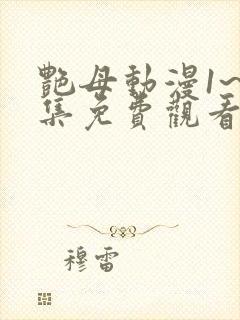 艷母動漫1~
集免費觀看
穆雷